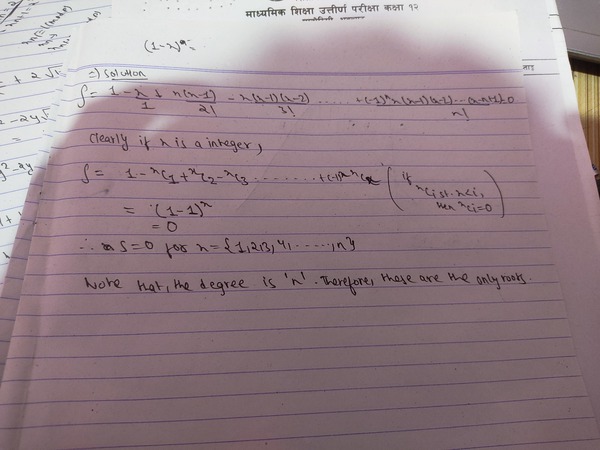 माध्यमिक शिक्षा उत्तीर्ण परीक्षा कक्षा १२
(1-x)ⁿ=
=) Solution
S= 1 - x/1 + x(x-1)/2! - x(x-1)(x-2)/3! ...... +(-1)ⁿ x(x-1)(x-2)...(x-n+1)/n! =0
Clearly if x is a integer,
S= 1 - ˣC₁ + ˣC₂ - ˣC₃ ........ + (-1)ˣ ˣCₓ (if ˣCᵢ st. x<i, then ˣCᵢ=0)
= (1-1)ˣ
= 0
∴ S=0 for x= {1,2,3,4,.....,n}
Note that, the degree is 'n'. Therefore, these are the only roots.